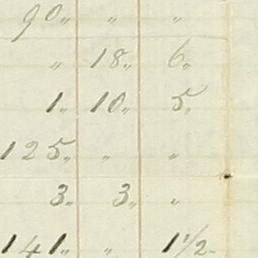 90,, ,, ,,
,, 18,, 6,,
1,, 10,, 5,,
125,, ,, ,,
3,, 3,, ,,
141,, ,, 1 1/2-